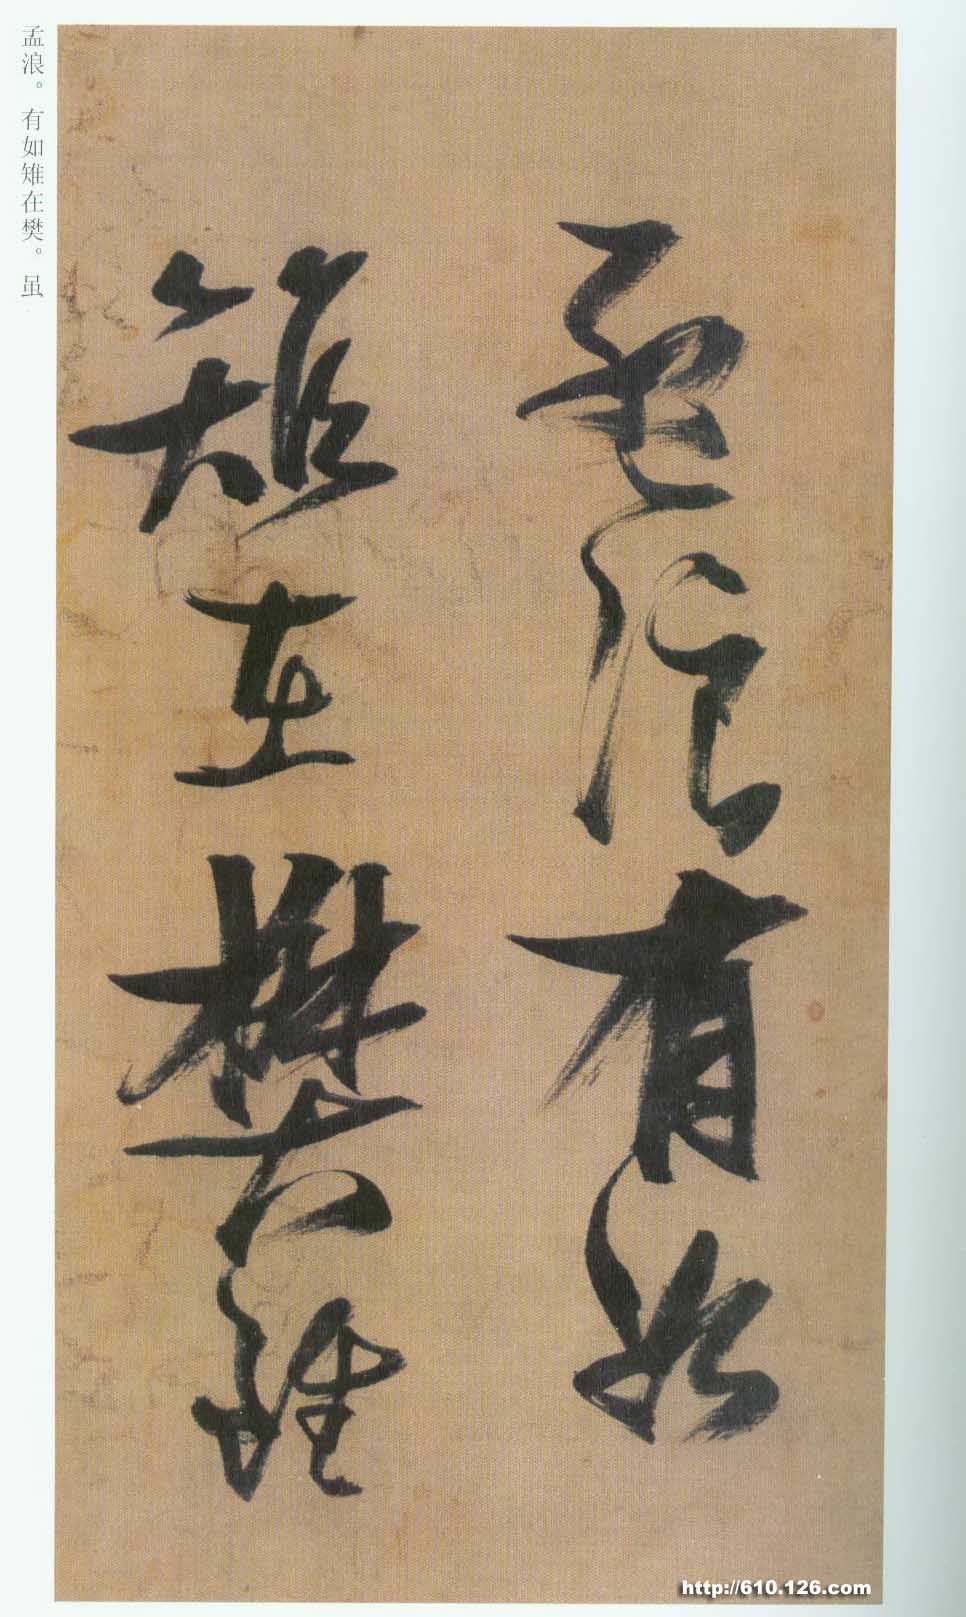 孟浪。有如雉在樊。虽
孟浪有如
雉在樊雖
http://610.126.com